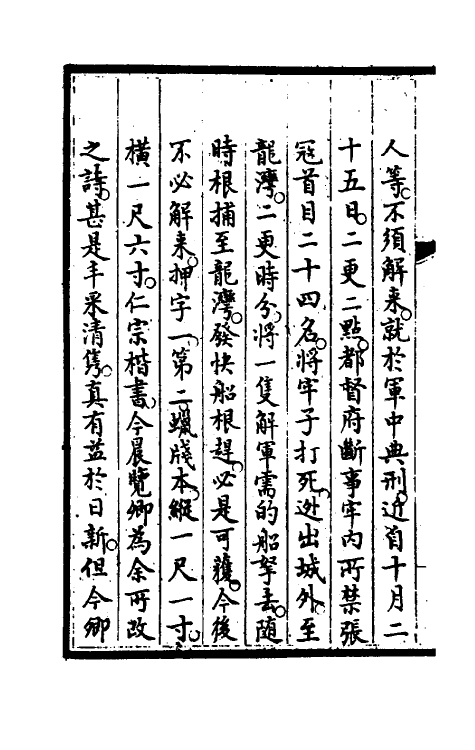 人等。不須解来。就於軍中典刑。近自十月二
十五日。二更二點。都督府斷事牢内所禁張
冦首目二十四名。將牢子打死。迯出城外。至
龍灣。二更時分。將一隻解軍需的船拏去。隨
時根捕至龍灣。發快船根趕。必是可獲。今後
不必解来。押字一。第二。蠟牋本。縱一尺一寸。
橫一尺六寸。仁宗楷書。今晨覽卿為余所改
之詩。甚是丰采清雋。真有益於日新。但今卿